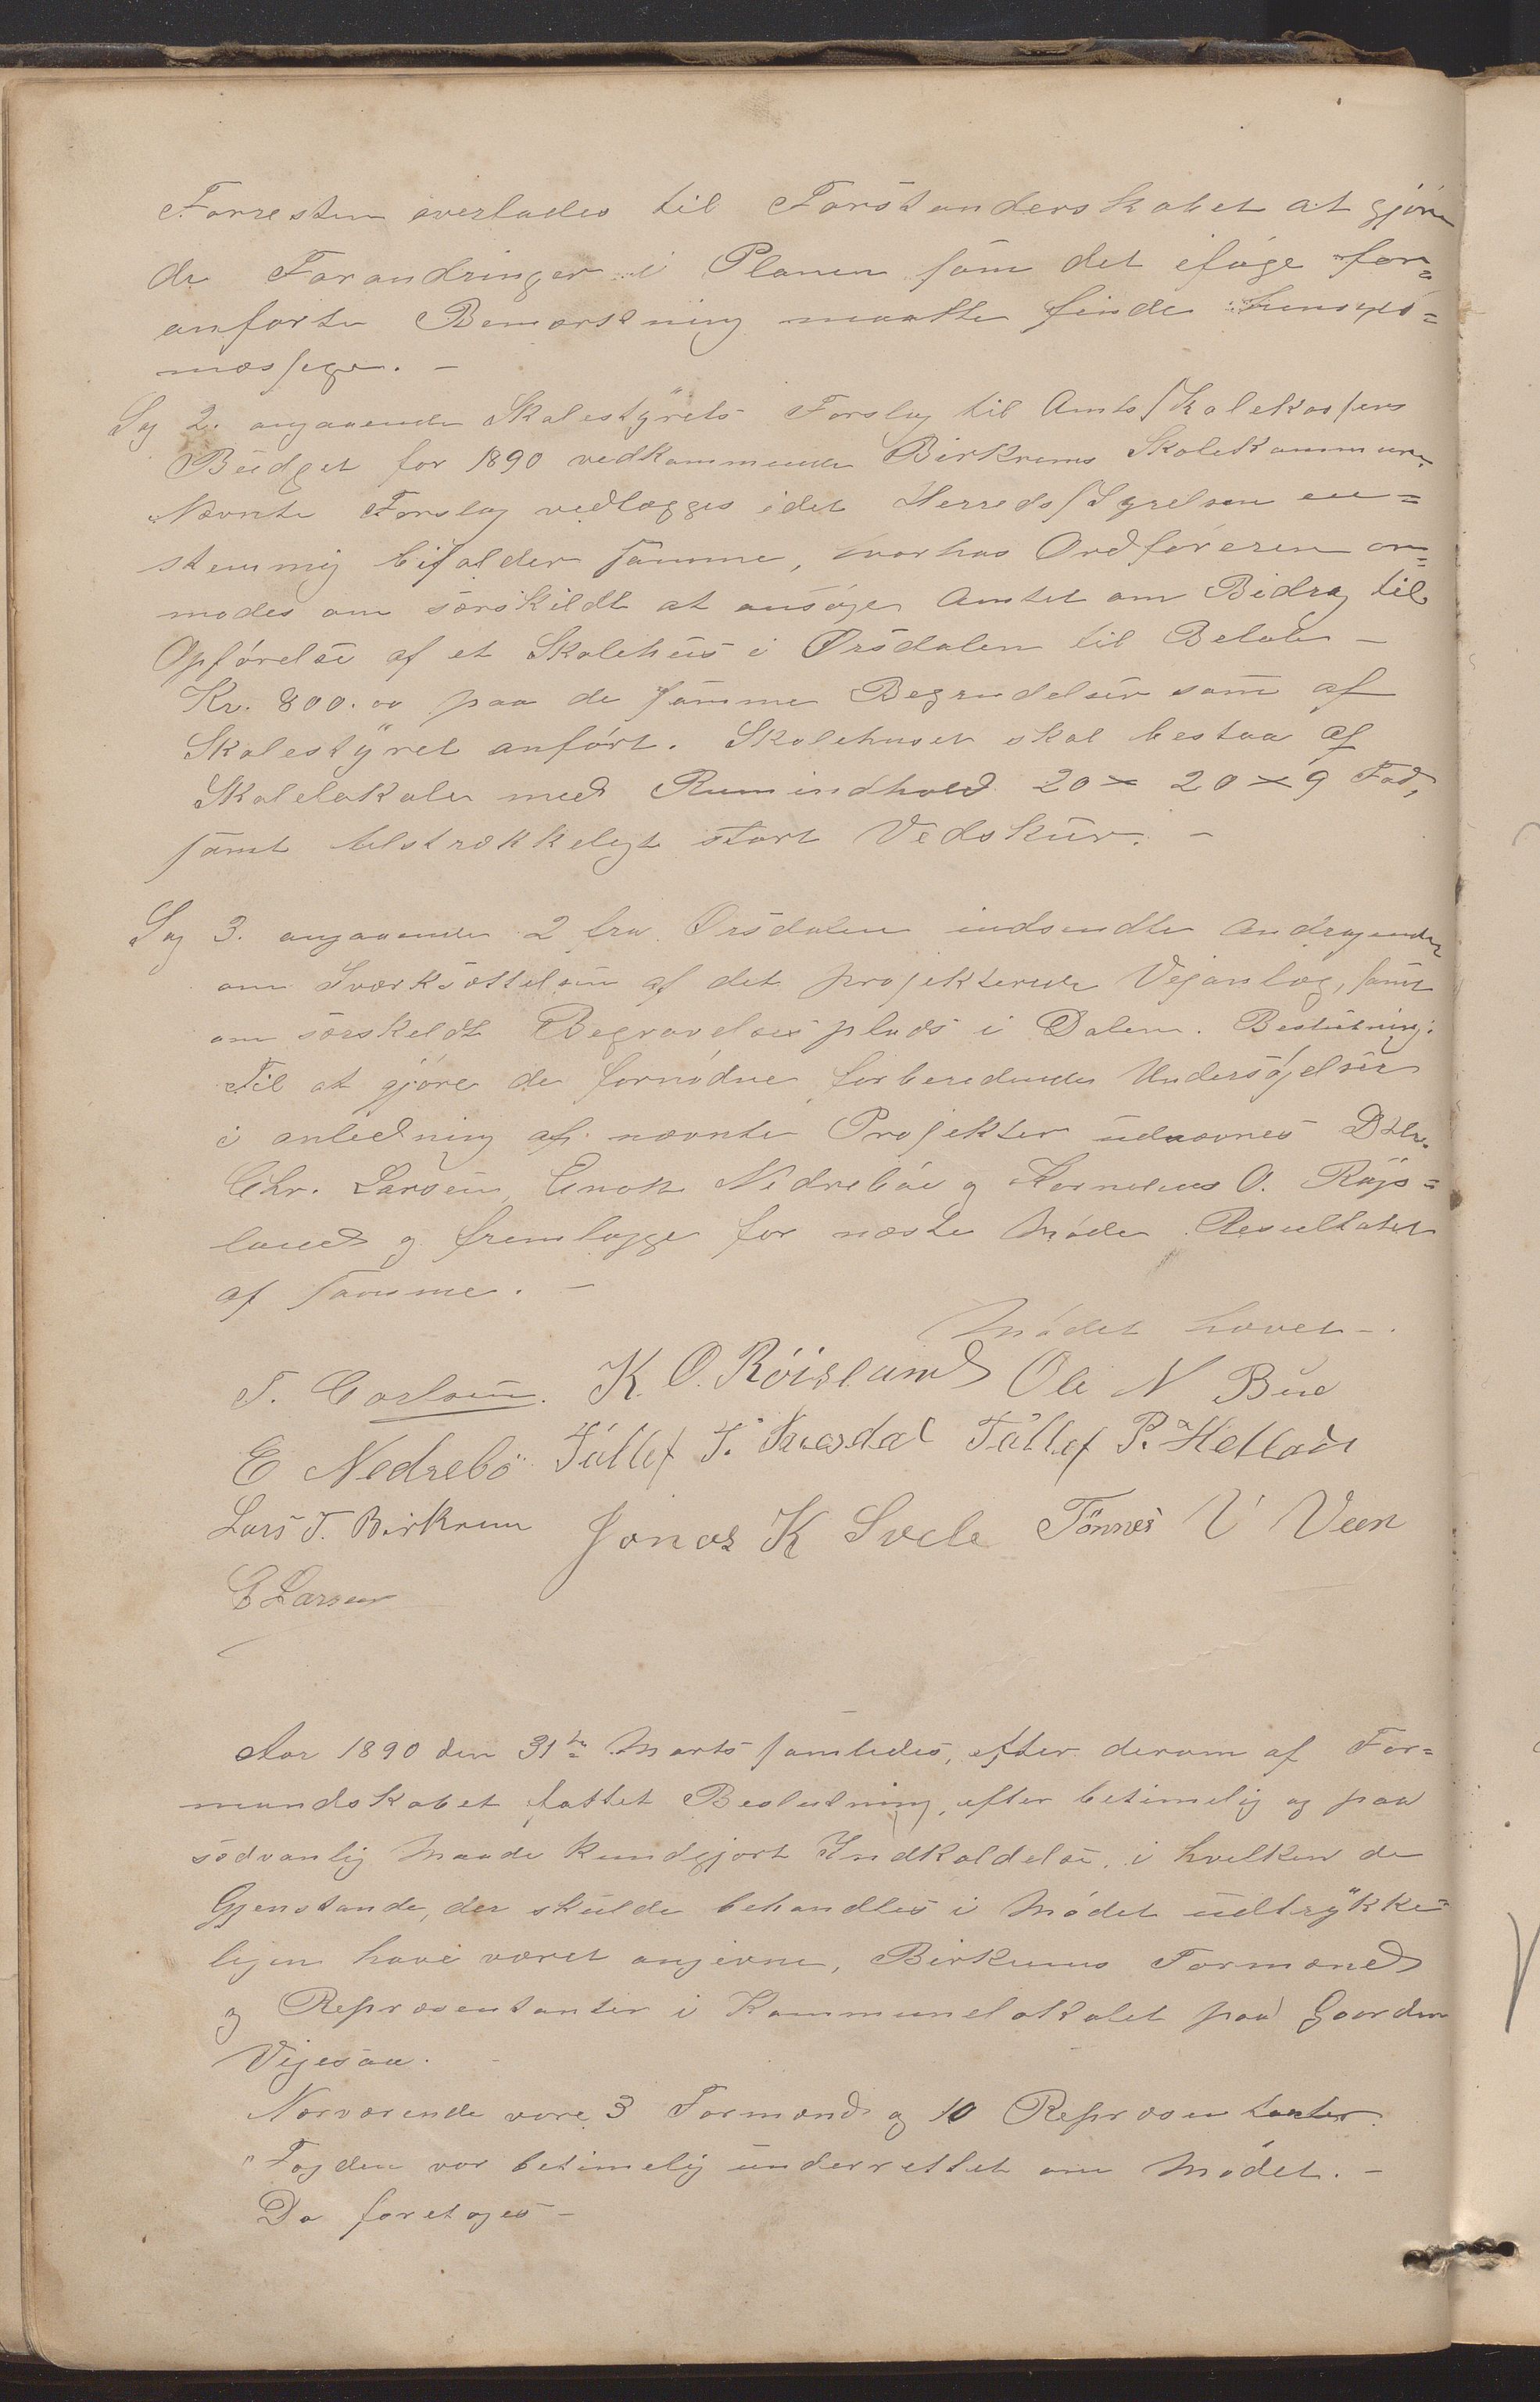 Forresten overlades til Forstanderskabet at gjøre
de Forandringer i Planen som det ifølge for=
anførte Bemærkning maatte finde hensyns=
mæssige. –
Sag 2. angaaende Skolestyrets Forslag til Amtsskolekassens
Budget for 1890 vedkommende Birkrems Skolekommune.
Nævnte Forslag vedlægges idet Herredsstyrelsen en=
stemmig bifalder samme, hvorhos Ordføreren an=
modes om særskildt at ansøge Amtet om Bidrag til
Opførelse af et Skolehus i Ørsdalen til Beløb –
Kr. 800.00 paa de samme Begrundelser som af
Skolestyret anført. Skolehuset skal bestaa af
Skolelokale med Rumindhold 20 × 20 × 9 Fod,
samt tilstrækkeligt stort Vedskur. –
Sag 3. angaaende 2 fra Ørsdalen indsendte Andragender
om Iværksættelsen af det projekterede Vejanlæg, samt
om særskildt Begravelsesplads i Dalen. Beslutning:
Til at gjøre de fornødne forberedende Undersøgelser
i anledning af nævnte Projekter udnævnes DHr.
Chr. Larsen, Enok Nedrebøe og Kornelius O. Røjs=
land og fremlægge for næste Møde Resultatet
af samme. –
Mødet hævet –.
T. Carlsen. K. O. Röisland Ole N Bue
E Nedrebö Tållef T. Netland Tållef P. Hetland
Lars T. Birkrem Jonas K Svele Tönnes V Veen
C Larsen
Aar 1890 den 31te Marts samledes, efter derom af For=
mandskabet fattet Beslutning, efter betimelig og paa
sædvanlig Maade kundgjort Indkaldelse, i hvilken de
Gjenstande, der skulde behandles i Mødet udtrykke=
ligen have været angivne, Birkrems Formænd
og Repræsentanter i Kommunelokalet paa Gaarden
Vigesaa.
Nærværende vare 3 Formænd og 10 Repræsentanter.
Fogden var betimelig underrettet om Mødet. –
Da foretoges –